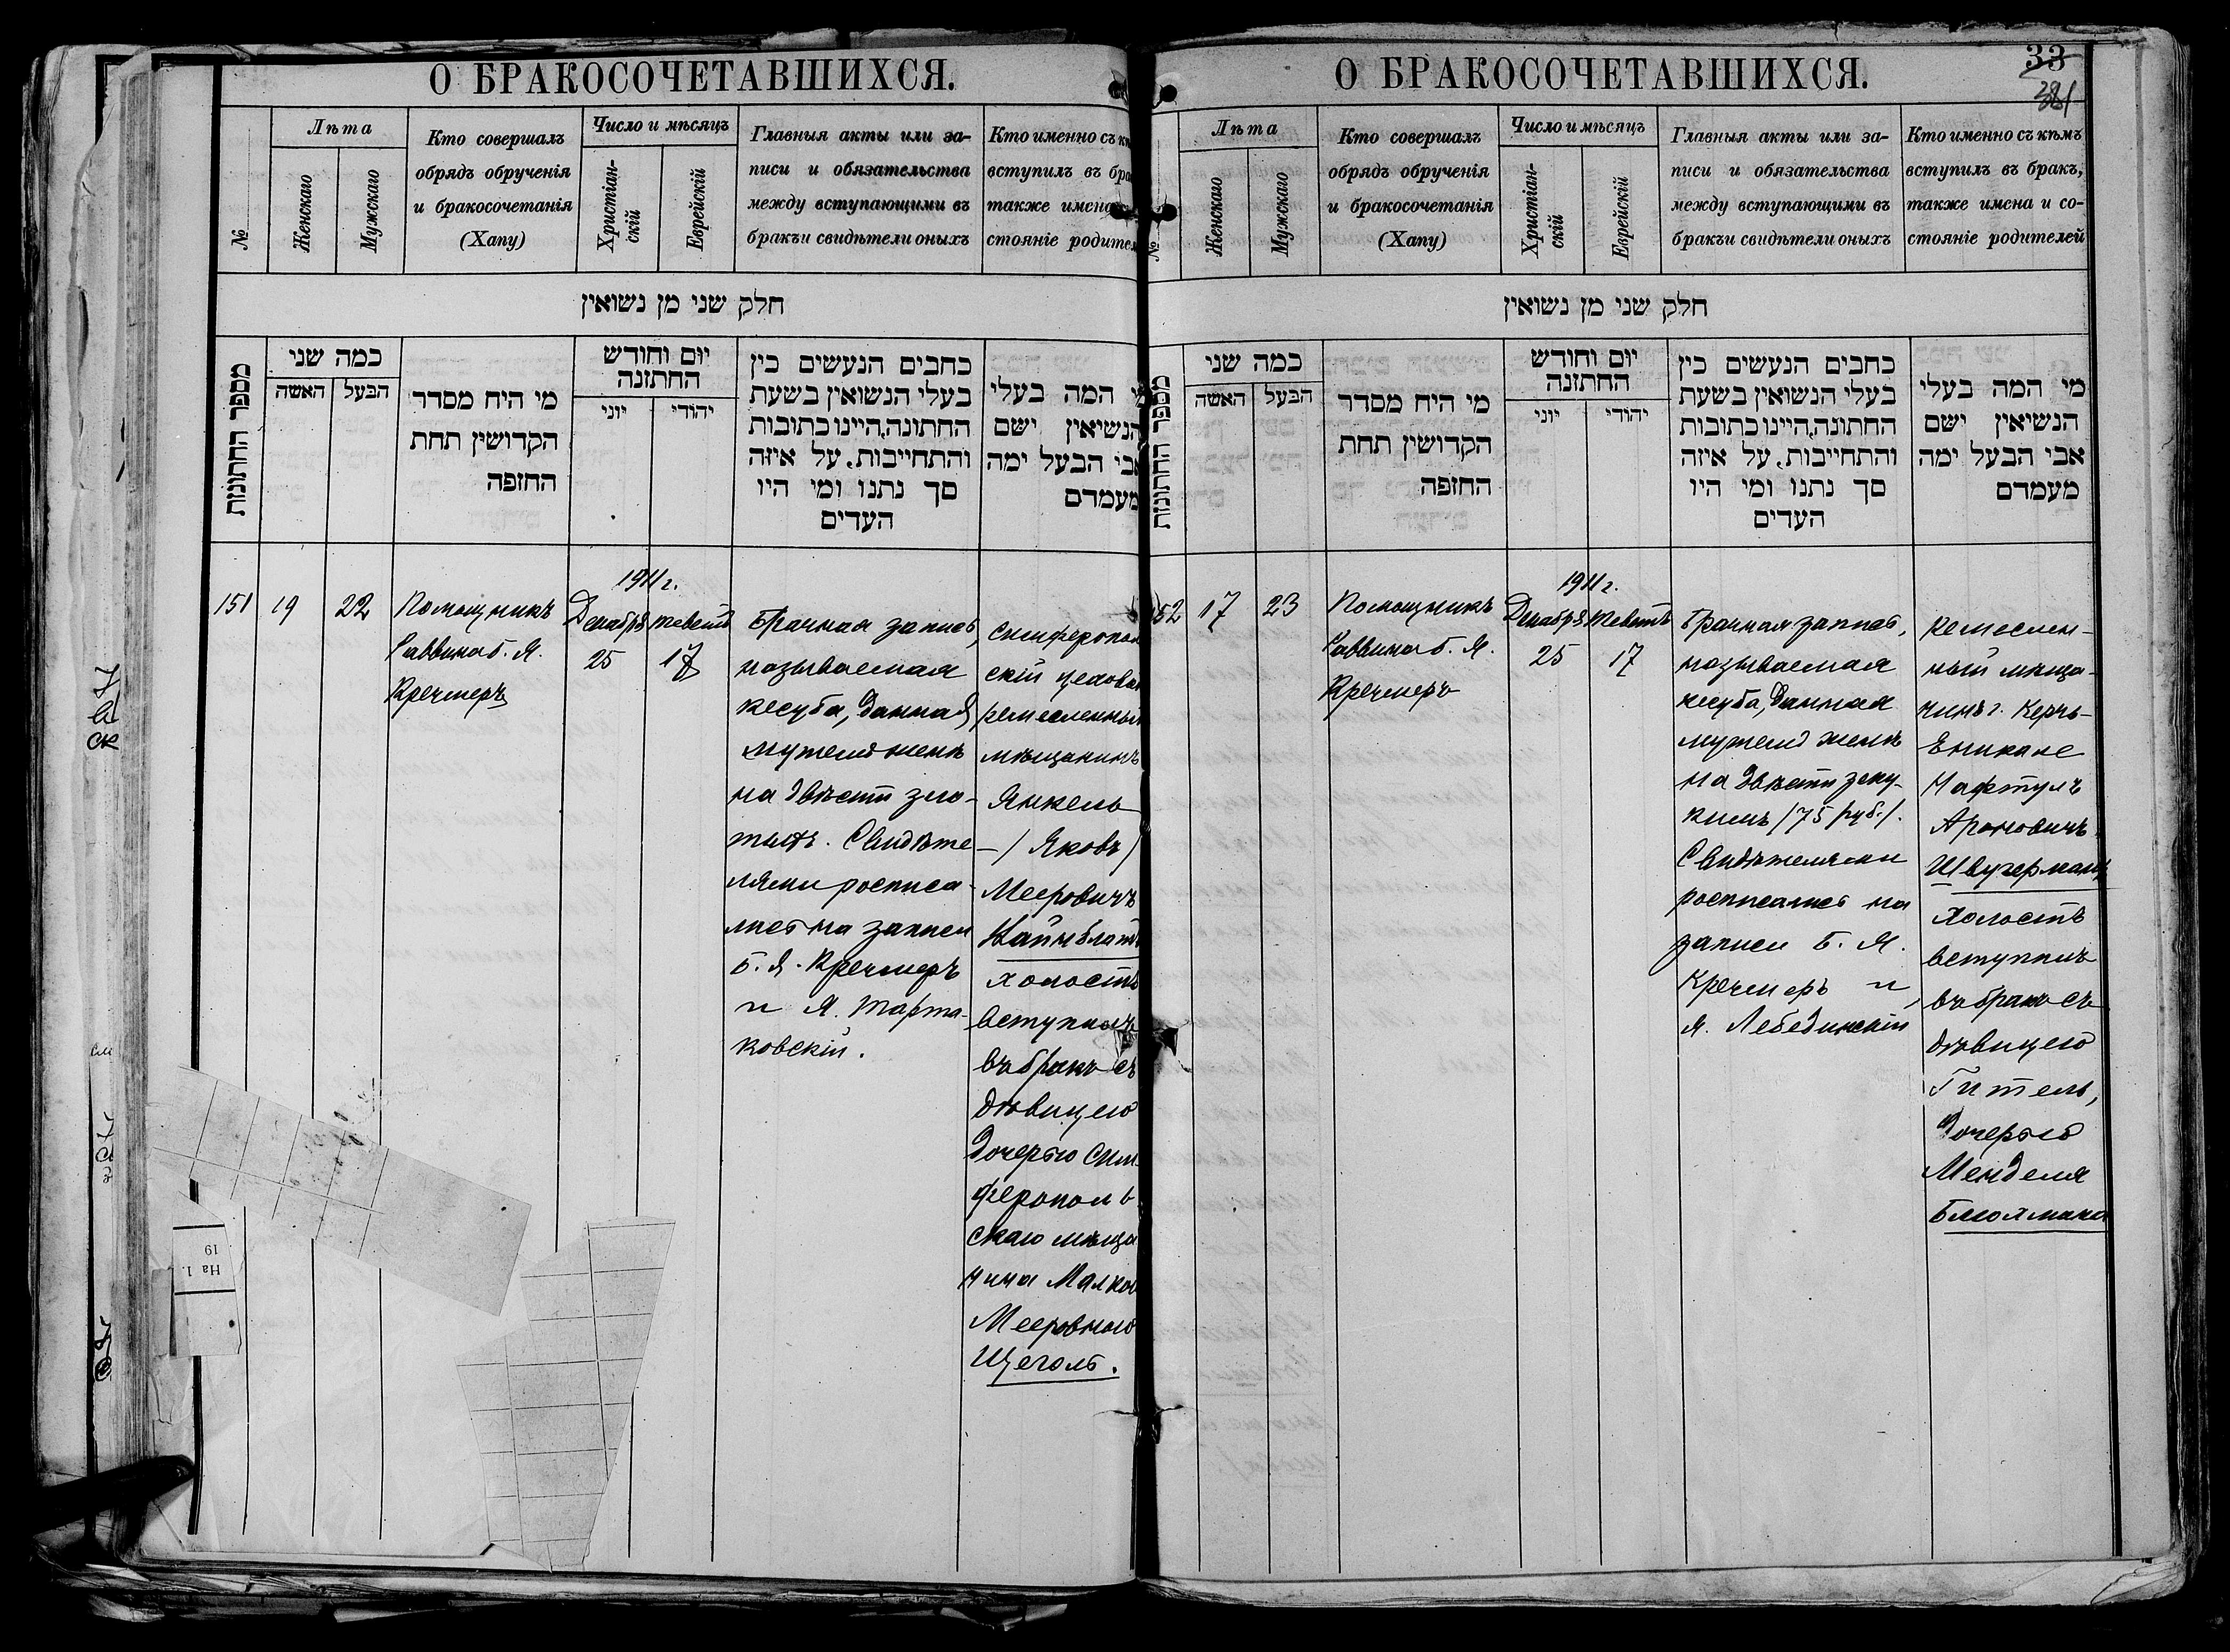 О БРАКОСОЧЕТАВШИХСЯ.
№
Лѣта
Женскаго
Мужскаго
Кто совершалъ
обрядъ обрученія
и бракосочетанія
(Хапу)
Число и мѣсяцъ
Христіан-
скій
Еврейскій
Главныя акты или за-
писи и обязательства
между вступающими въ
бракъ и свидѣтели оныхъ
Кто именно съ
вступилъ въ
также имена
стояніе
חלק שני מן נשואין
מספר החתונות
כמה שני
האשה
הבעל
מי היה מסדר
הקדושין תחת
החופה
יום וחודש
החתונה
יוני
יהודי
כתבים הנעשים בין
בעלי הנשואין בשעת
החתונה, היינו כתובות
והתחייבות, על איזה
סך נתנו ומי היו
העדים
המה בעלי
הנשיאין ישם
אבי הבעל ימה
מעמדם
151
19
22
Помощникъ
Раввина б. Я.
Кречмеръ
1911 г.
Декабря
25
Теветъ
17
Брачная запись,
называемая
кесуба, данная
мужемъ женѣ
на двѣсти зло-
тыхъ. Свидѣте-
лями росписа-
лись на записи
Б. Я. Кречмеръ
и Я. Тарта-
ковскій.
Симферополь
скій цеховой
ремесленный
мѣщанинъ
Янкель
/Яковъ/
Мееровичъ
Вайнблатъ
холостъ
вступилъ
въ бракъ съ
дѣвицею
дочерью Сим
ферополь
скаго мѣща
нина Малкою
Мееровною
Щеголь.
На 1.
19
О БРАКОСОЧЕТАВШИХСЯ.
33
№
Лѣта
Женскаго
Мужскаго
Кто совершалъ
обрядъ обрученія
и бракосочетанія
(Хапу)
Число и мѣсяцъ
Христіан-
скій
Еврейскій
Главныя акты или за-
писи и обязательства
между вступающими въ
бракъ и свидѣтели оныхъ
Кто именно съ кѣмъ
вступилъ въ бракъ,
также имена и со-
стояніе родителей
חלק שני מן נשואין
מספר החתונות
כמה שני
האשה
הבעל
מי היה מסדר
הקדושין תחת
החופה
יום וחודש
החתונה
יוני
יהודי
כתבים הנעשים בין
בעלי הנשואין בשעת
החתונה, היינו כתובות
והתחייבות, על איזה
סך נתנו ומי היו
העדים
מי המה בעלי
הנשיאין ישם
אבי הבעל ימה
מעמדם
52
17
23
Помощникъ
Раввина б. Я.
Кречмеръ
1911 г.
Декабря
25
Теветъ
17
Брачная запись,
называемая
кесуба, данная
мужемъ женѣ
на двѣсти зеку-
кимъ /75 руб./.
Свидѣтелями
росписались на
записи Б. Я.
Кречмеръ и
Я. Лебединскій
Ремеслен-
ный мѣща-
нинъ г. Керчь-
Еникале
Нафтулъ
Ароновичъ
Швугерманъ
холостъ
вступилъ
въ бракъ съ
дѣвицею
Гитель,
дочерью
Менделя
Блюхмана